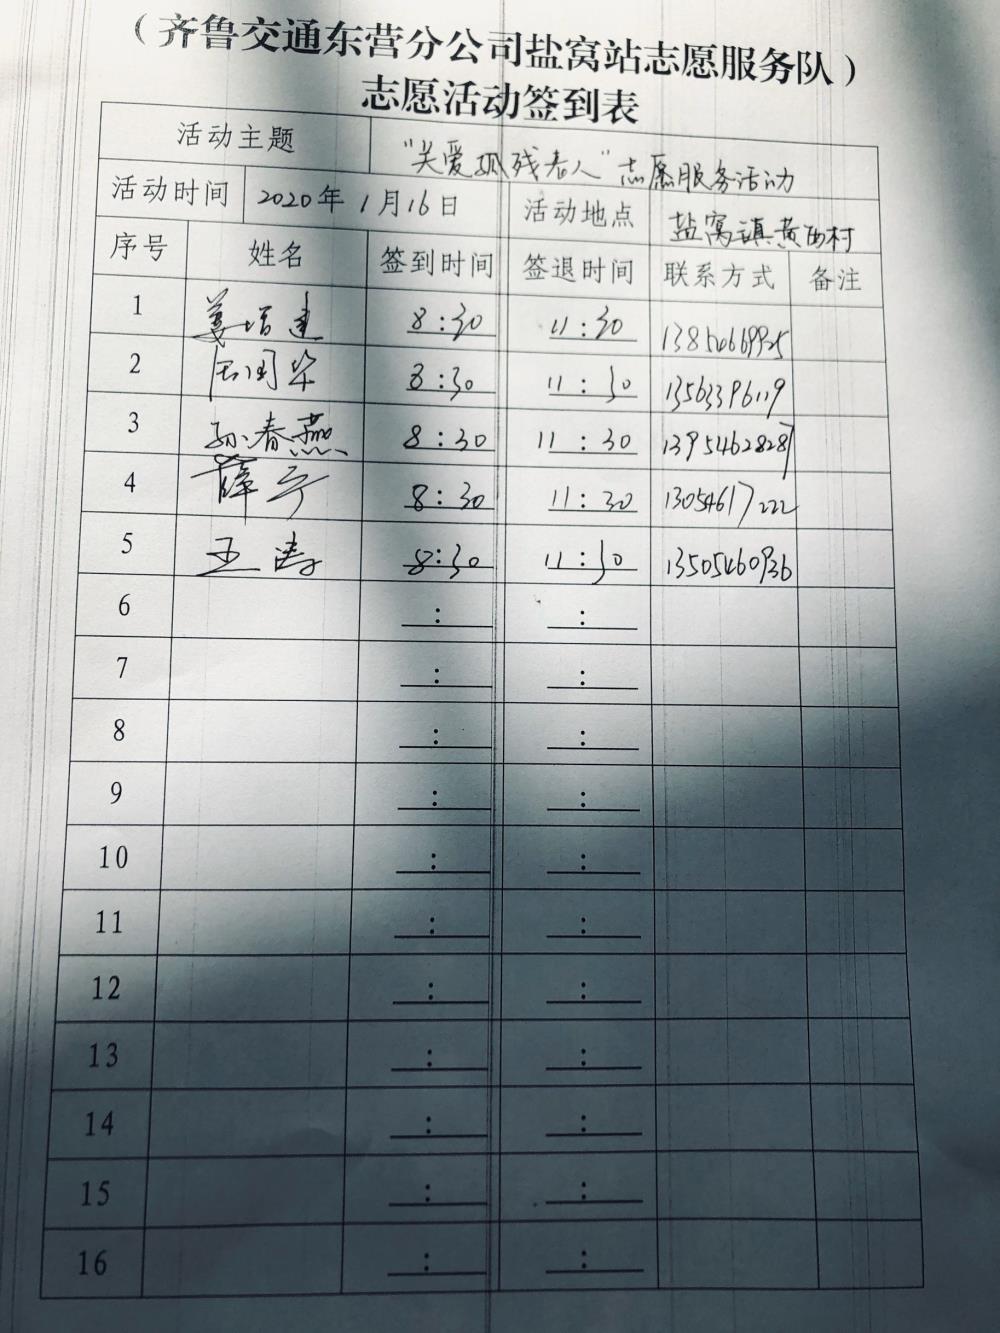 （齐鲁交通东营分公司盐窝站志愿服务队）
志愿活动签到表
活动主题 “关爱孤残老人”志愿服务活动
活动时间 2020年1月16日 活动地点 盐窝镇黄西村
序号 姓名 签到时间 签退时间 联系方式 备注
1 姜培建 8:30 11:30
2 周国华 8:30 11:30 13563396119
3 孙春燕 8:30 11:30 13954628287
4 薛宁 8:30 11:30 13054617222
5 王涛 8:30 11:30 13505460936
6 : :
7 : :
8 : :
9 : :
10 : :
11 : :
12 : :
13 : :
14 : :
15 : :
16 : :